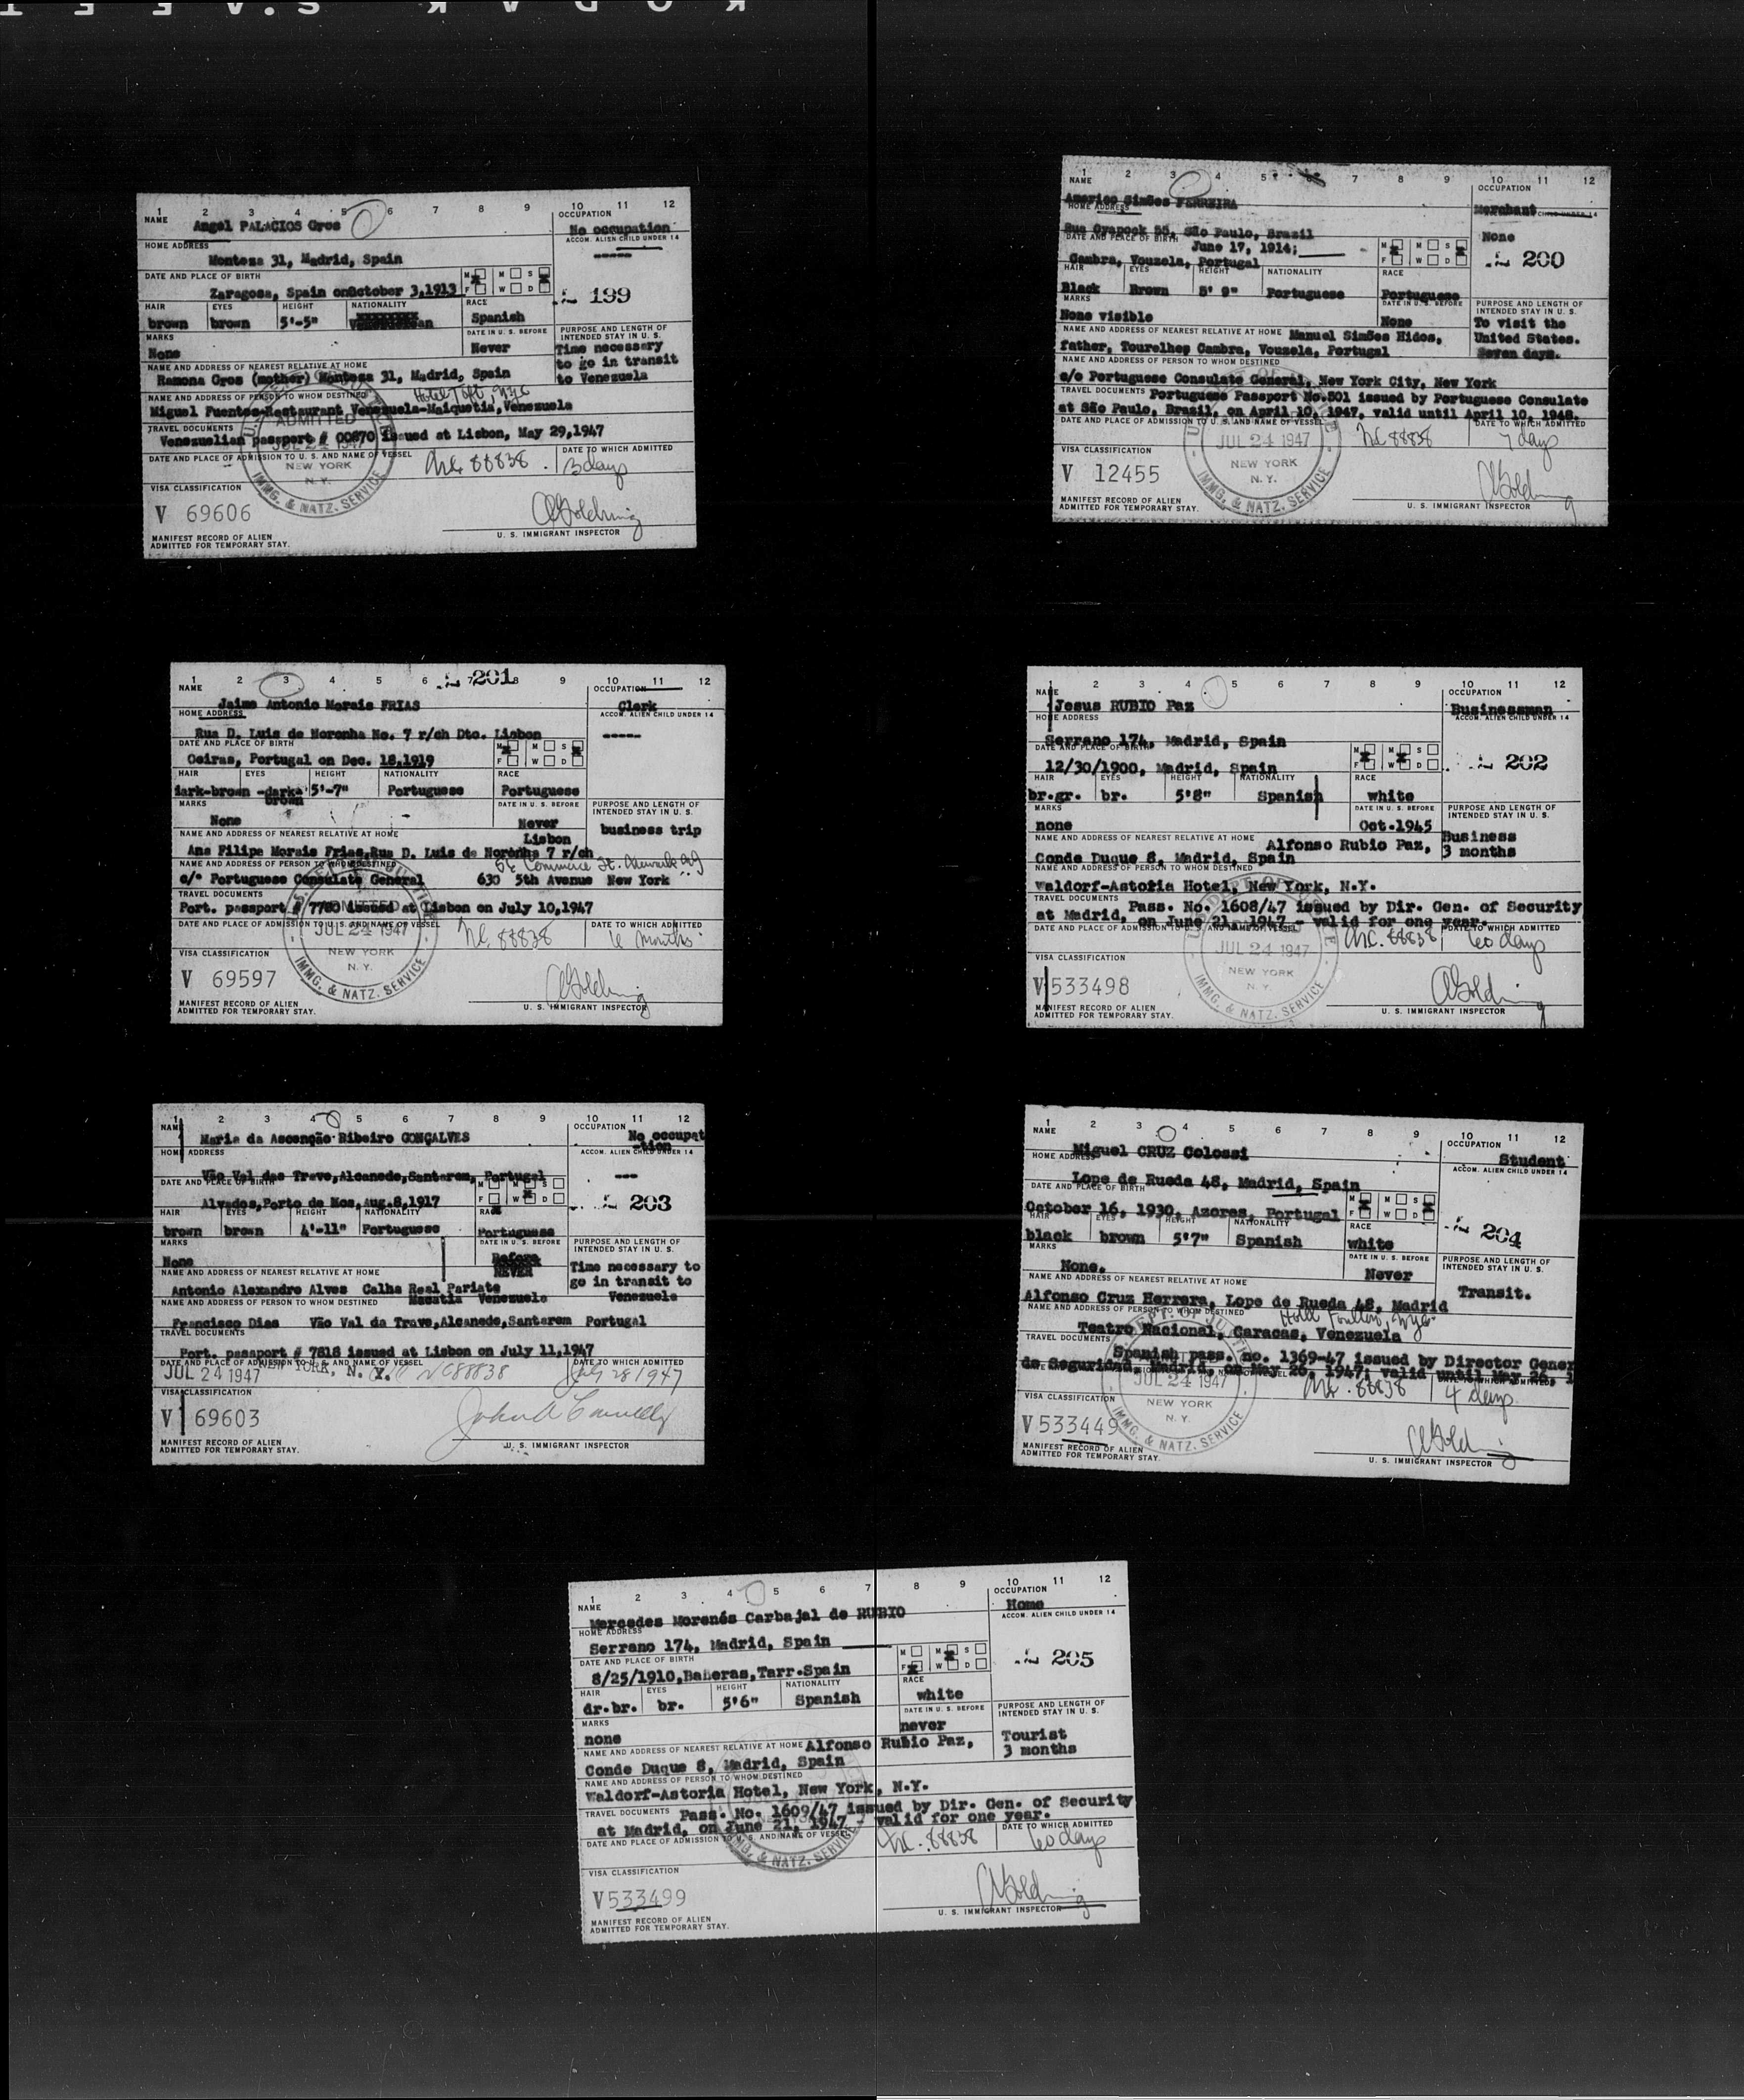 KODAK S.AFETY
1 2 3 4 5 6 7 8 9 10 11 12
NAME
OCCUPATION
Angel PALACIOS Gros
No occupation
HOME ADDRESS
ACCOM. ALIEN CHILD UNDER 14
Montesa 31, Madrid, Spain
-----
DATE AND PLACE OF BIRTH
M M S
F W D
Zaragosa, Spain onOctober 3,1913
199
HAIR EYES HEIGHT NATIONALITY RACE
brown brown 5'-5" Spanish
MARKS
DATE IN U. S. BEFORE
PURPOSE AND LENGTH OF INTENDED STAY IN U. S.
None
Never
Time necessary
to go in transit
to Venezuela
NAME AND ADDRESS OF NEAREST RELATIVE AT HOME
Ramona Gros (mother) Montesa 31, Madrid, Spain
NAME AND ADDRESS OF PERSON TO WHOM DESTINED
Hotel Taft, NYC
Miguel Fuentes-Restaurant Venezuela-Maiquetia, Venezuela
TRAVEL DOCUMENTS
ADMITTED
Venezuelian passport # 00870 issued at Lisbon, May 29,1947
JUL 24 1947
DATE AND PLACE OF ADMISSION TO U. S. AND NAME OF VESSEL
DATE TO WHICH ADMITTED
NEW YORK
N. Y.
NC 88838
3 days
IMMG. & NATZ. SERVICE
VISA CLASSIFICATION
V 69606
A Goldring
U. S. IMMIGRANT INSPECTOR
MANIFEST RECORD OF ALIEN
ADMITTED FOR TEMPORARY STAY.
1 2 3 4 5 7 8 9 10 11 12
NAME
OCCUPATION
Americo Simões FERREIRA
Merchant
HOME ADDRESS
CHILD UNDER 14
Rua Oyapock 55, São Paulo, Brazil
None
DATE AND PLACE OF BIRTH
June 17, 1914;
M M S
F W D
Cambra, Vouzela, Portugal
200
HAIR EYES HEIGHT NATIONALITY RACE
Black Brown 5' 9" Portuguese Portuguese
MARKS
DATE IN U. S. BEFORE
PURPOSE AND LENGTH OF INTENDED STAY IN U. S.
None visible
None
To visit the
United States.
Seven days.
NAME AND ADDRESS OF NEAREST RELATIVE AT HOME
Manuel Simões Hidos,
father, Tourelhep Cambra, Vouzela, Portugal
NAME AND ADDRESS OF PERSON TO WHOM DESTINED
c/o Portuguese Consulate General, New York City, New York
TRAVEL DOCUMENTS
Portuguese Passport No.501 issued by Portuguese Consulate
at São Paulo, Brazil, on April 10, 1947, valid until April 10, 1948.
DATE AND PLACE OF ADMISSION TO U. S. AND NAME OF VESSEL
DATE TO WHICH ADMITTED
JUL 24 1947
NC 88838
7 days
NEW YORK
N. Y.
IMMG. & NATZ. SERVICE
VISA CLASSIFICATION
V 12455
A Goldring
U. S. IMMIGRANT INSPECTOR
MANIFEST RECORD OF ALIEN
ADMITTED FOR TEMPORARY STAY.
1 2 3 4 5 6 7 8 9 10 11 12
201
NAME
OCCUPATION
Jaime Antonio Morais FRIAS
Clerk
HOME ADDRESS
ACCOM. ALIEN CHILD UNDER 14
Rua D. Luis de Noronha No. 7 r/ch Dto. Lisbon
-----
DATE AND PLACE OF BIRTH
M M S
F W D
Oeiras, Portugal on Dec. 18,1919
HAIR EYES HEIGHT NATIONALITY RACE
dark-brown -dark brown 5'-7" Portuguese Portuguese
MARKS
DATE IN U. S. BEFORE
PURPOSE AND LENGTH OF INTENDED STAY IN U. S.
None
Never
business trip
NAME AND ADDRESS OF NEAREST RELATIVE AT HOME
Lisbon
Ana Filipe Morais Frias,Rua D. Luis de Noronha 7 r/ch
NAME AND ADDRESS OF PERSON TO WHOM DESTINED
Commerce St. Newark NJ
c/o Portuguese Consulate General 630 5th Avenue New York
TRAVEL DOCUMENTS
Port. passport # 7780 issued at Lisbon on July 10,1947
ADMITTED
DATE AND PLACE OF ADMISSION TO U. S. AND NAME OF VESSEL
DATE TO WHICH ADMITTED
JUL 24 1947
NC 88838
6 months
NEW YORK
N. Y.
IMMG. & NATZ. SERVICE
VISA CLASSIFICATION
V 69597
A Goldring
U. S. IMMIGRANT INSPECTOR
MANIFEST RECORD OF ALIEN
ADMITTED FOR TEMPORARY STAY.
1 2 3 4 5 6 7 8 9 10 11 12
NAME
OCCUPATION
Jesus RUBIO Paz
Businessman
HOME ADDRESS
ACCOM. ALIEN CHILD UNDER 14
Serrano 174, Madrid, Spain
DATE AND PLACE OF BIRTH
M M S
F W D
12/30/1900, Madrid, Spain
202
HAIR EYES HEIGHT NATIONALITY RACE
br.gr. br. 5'8" Spanish white
MARKS
DATE IN U. S. BEFORE
PURPOSE AND LENGTH OF INTENDED STAY IN U. S.
none
Oct.1945
Business
3 months
NAME AND ADDRESS OF NEAREST RELATIVE AT HOME
Alfonso Rubio Paz,
Conde Duque 8, Madrid, Spain
NAME AND ADDRESS OF PERSON TO WHOM DESTINED
Waldorf-Astoria Hotel, New York, N.Y.
TRAVEL DOCUMENTS
Pass. No. 1608/47 issued by Dir. Gen. of Security
at Madrid, on June 21, 1947 - valid for one year.
DATE AND PLACE OF ADMISSION TO U. S. AND NAME OF VESSEL
DATE TO WHICH ADMITTED
JUL 24 1947
NC. 88838
60 days
NEW YORK
N. Y.
IMMG. & NATZ. SERVICE
VISA CLASSIFICATION
V 533498
A Goldring
U. S. IMMIGRANT INSPECTOR
MANIFEST RECORD OF ALIEN
ADMITTED FOR TEMPORARY STAY.
1 2 3 4 5 6 7 8 9 10 11 12
NAME
OCCUPATION
Maria da Ascenção Ribeiro GONÇALVES
No occupat
-tion
HOME ADDRESS
ACCOM. ALIEN CHILD UNDER 14
Vão Val das Trave,Alcanede,Santarem, Portugal
---
DATE AND PLACE OF BIRTH
M M S
F W D
Alvados,Porto de Mos,Aug.8,1917
203
HAIR EYES HEIGHT NATIONALITY RACE
brown brown 4'-11" Portuguese Portuguese
MARKS
DATE IN U. S. BEFORE
PURPOSE AND LENGTH OF INTENDED STAY IN U. S.
None
Before
NEVER
Time necessary to
go in transit to
Venezuela
NAME AND ADDRESS OF NEAREST RELATIVE AT HOME
Antonio Alexandre Alves Calha Real Pariate
Macatia Venezuela
NAME AND ADDRESS OF PERSON TO WHOM DESTINED
Francisco Dias Vão Val da Trave,Alcanede,Santarem Portugal
TRAVEL DOCUMENTS
Port. passport # 7818 issued at Lisbon on July 11,1947
DATE AND PLACE OF ADMISSION TO U. S. AND NAME OF VESSEL
DATE TO WHICH ADMITTED
JUL 24 1947 NEW YORK, N. Y. NC88838
July 28 1947
VISA CLASSIFICATION
V 69603
U. S. IMMIGRANT INSPECTOR
MANIFEST RECORD OF ALIEN
ADMITTED FOR TEMPORARY STAY.
1 2 3 4 5 6 7 8 9 10 11 12
NAME
OCCUPATION
Miguel CRUZ Colossi
Student
HOME ADDRESS
ACCOM. ALIEN CHILD UNDER 14
Lope de Rueda 48, Madrid, Spain
DATE AND PLACE OF BIRTH
M M S
F W D
October 16, 1930, Azores, Portugal
204
HAIR EYES HEIGHT NATIONALITY RACE
black brown 5'7" Spanish white
MARKS
DATE IN U. S. BEFORE
PURPOSE AND LENGTH OF INTENDED STAY IN U. S.
None.
Never
Transit.
NAME AND ADDRESS OF NEAREST RELATIVE AT HOME
Alfonso Cruz Herrera, Lope de Rueda 48, Madrid
NAME AND ADDRESS OF PERSON TO WHOM DESTINED
Teatro Nacional, Caracas, Venezuela
TRAVEL DOCUMENTS
Spanish pass. no. 1369-47 issued by Director Gener
de Seguridad, Madrid, on May 26, 1947; valid until May 26, 1
JUL 24 1947
NC. 88838
4 days
NEW YORK
N. Y.
IMMG. & NATZ. SERVICE
VISA CLASSIFICATION
V 533449
A Goldring
U. S. IMMIGRANT INSPECTOR
MANIFEST RECORD OF ALIEN
ADMITTED FOR TEMPORARY STAY.
1 2 3 4 5 6 7 8 9 10 11 12
NAME
OCCUPATION
Mercedes Morenés Carbajal de RUBIO
Home
HOME ADDRESS
ACCOM. ALIEN CHILD UNDER 14
Serrano 174, Madrid, Spain
DATE AND PLACE OF BIRTH
M M S
F W D
8/25/1910,Bañeras,Tarr.Spain
205
HAIR EYES HEIGHT NATIONALITY RACE
dr.br. br. 5'6" Spanish white
MARKS
DATE IN U. S. BEFORE
PURPOSE AND LENGTH OF INTENDED STAY IN U. S.
none
never
Tourist
3 months
NAME AND ADDRESS OF NEAREST RELATIVE AT HOME
Alfonso Rubio Paz,
Conde Duque 8, Madrid, Spain
NAME AND ADDRESS OF PERSON TO WHOM DESTINED
Waldorf-Astoria Hotel, New York, N.Y.
TRAVEL DOCUMENTS
Pass. No. 1609/47 issued by Dir. Gen. of Security
at Madrid, on June 21, 1947 - valid for one year.
DATE AND PLACE OF ADMISSION TO U. S. AND NAME OF VESSEL
DATE TO WHICH ADMITTED
NC. 88838
60 days
IMMG. & NATZ. SERVICE
VISA CLASSIFICATION
V 533499
A Goldring
U. S. IMMIGRANT INSPECTOR
MANIFEST RECORD OF ALIEN
ADMITTED FOR TEMPORARY STAY.